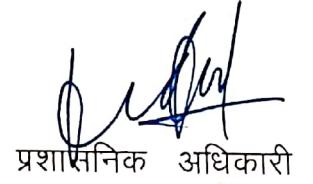 प्रशासनिक अधिकारी